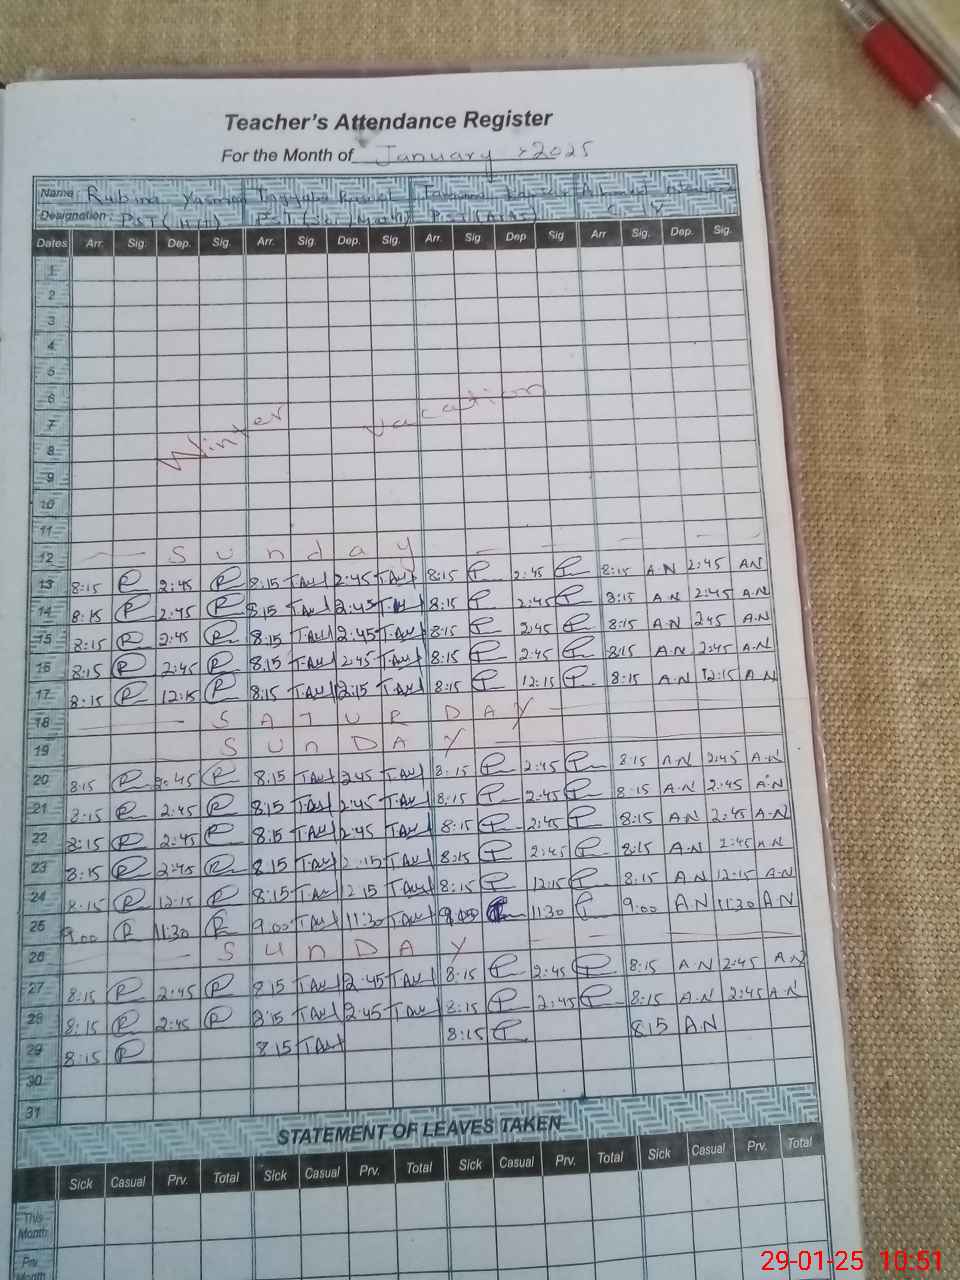 Teacher's Attendance Register
For the Month of January, 2025
Name: Rubina Yasmin
Designation: PST
Dates Arr. Sig. Dep. Sig. Arr. Sig. Dep. Sig. Arr. Sig Dep Sig Arr Sig. Dep. Sig.
1
2
3
4
5
6
7
Winter vacation
8
9
10
11
12 Sunday
13 8:15 R 2:45 R 8:15 2:45 8:15 2:45 8:15 A.N 2:45 A.N
14 8:15 R 2:45 R 8:15 2:45 8:15 2:45 8:15 A.N 2:45 A.N
15 8:15 R 2:45 R 8:15 2:45 8:15 2:45 8:15 A.N 2:45 A.N
16 8:15 R 2:45 R 8:15 2:45 8:15 2:45 8:15 A.N 2:45 A.N
17 8:15 R 12:15 R 8:15 12:15 8:15 12:15 8:15 A.N 12:15 A.N
18 SATURDAY
19 SUNDAY
20 8:15 R 2:45 R 8:15 2:45 8:15 2:45 8:15 A.N 2:45 A.N
21 8:15 R 2:45 R 8:15 2:45 8:15 2:45 8:15 A.N 2:45 A.N
22 8:15 R 2:45 R 8:15 2:45 8:15 2:45 8:15 A.N 2:45 A.N
23 8:15 R 2:45 R 8:15 8:15 2:45 8:15 A.N 2:45 A.N
24 8:15 R 12:15 R 8:15 12:15 8:15 12:15 8:15 A.N 12:15 A.N
25 9:00 R 11:30 R 9:00 11:30 11:30 9:00 A.N 11:30 A.N
26 SUNDAY
27 8:15 R 2:45 R 8:15 2:45 8:15 2:45 8:15 A.N 2:45 A.N
28 8:15 R 2:45 R 8:15 2:45 8:15 2:45 8:15 A.N 2:45 A.N
29 8:15 R 8:15 8:15 8:15 A.N
30
31
STATEMENT OF LEAVES TAKEN
Sick Casual Prv. Total Sick Casual Prv. Total Sick Casual Prv. Total Sick Casual Prv. Total
This
Month
Prv.
Month
29-01-25 10:51